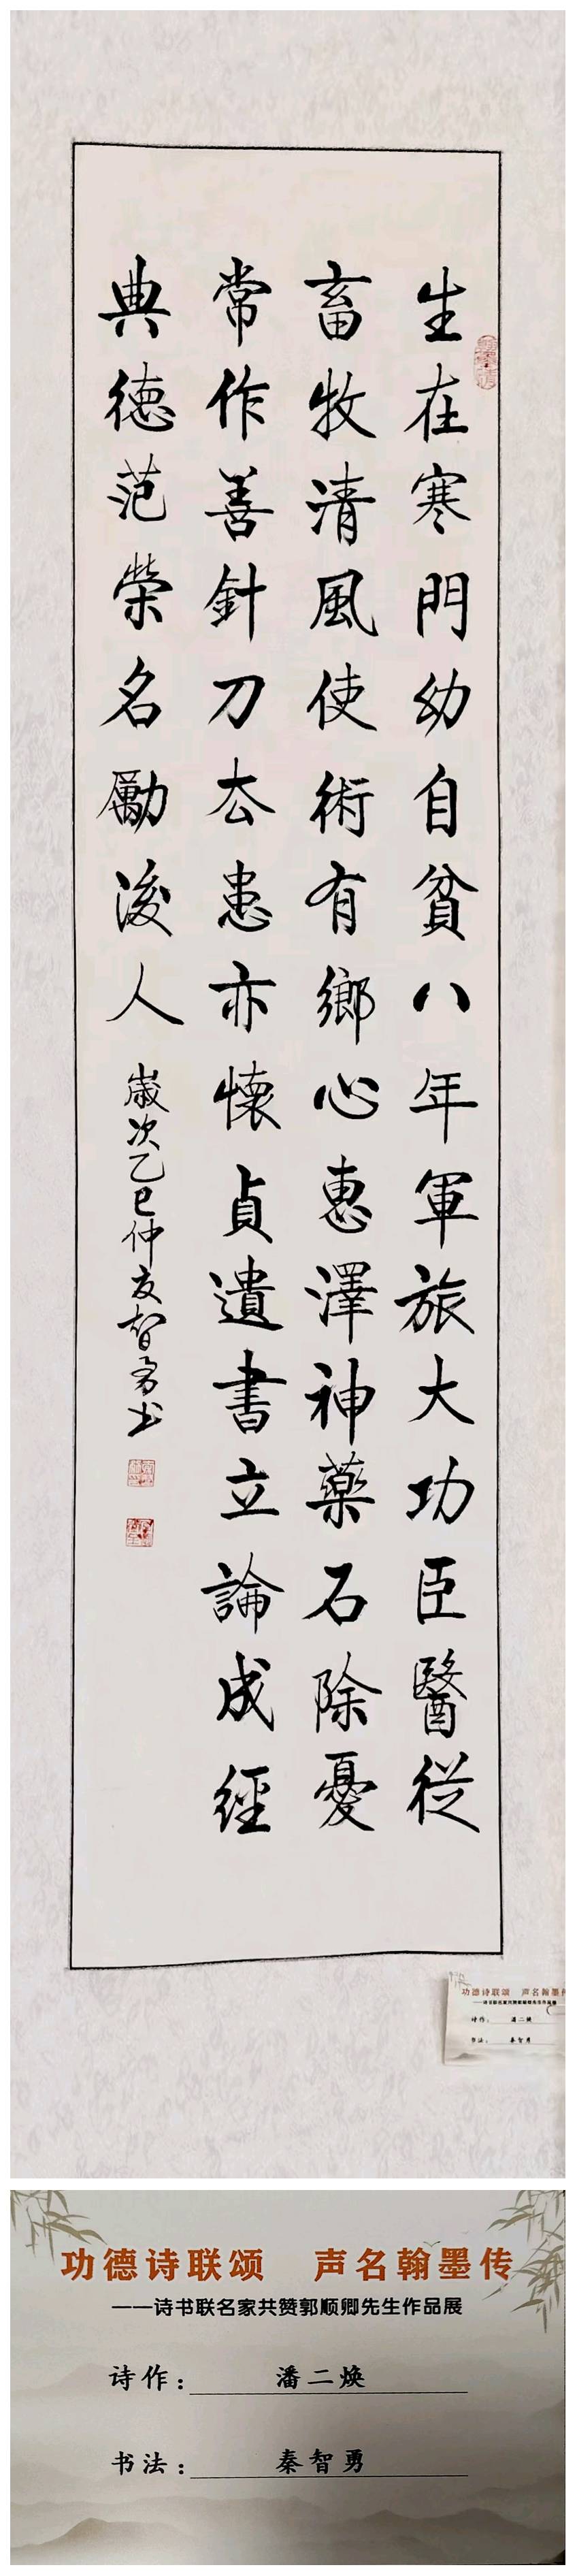 生在寒門幼自貧八年軍旅大功臣醫從
畜牧清風使術有鄉心惠澤神藥石除憂
常作善針刀去患亦懷貞遺書立論成經
典德范榮名勵後人
歲次乙巳仲夏智勇书
功德诗联颂 声名翰墨传
——诗书联名家共赞郭顺卿先生作品展
诗作： 潘二焕
书法： 秦智勇
功德诗联颂 声名翰墨传
——诗书联名家共赞郭顺卿先生作品展
诗作： 潘二焕
书法： 秦智勇